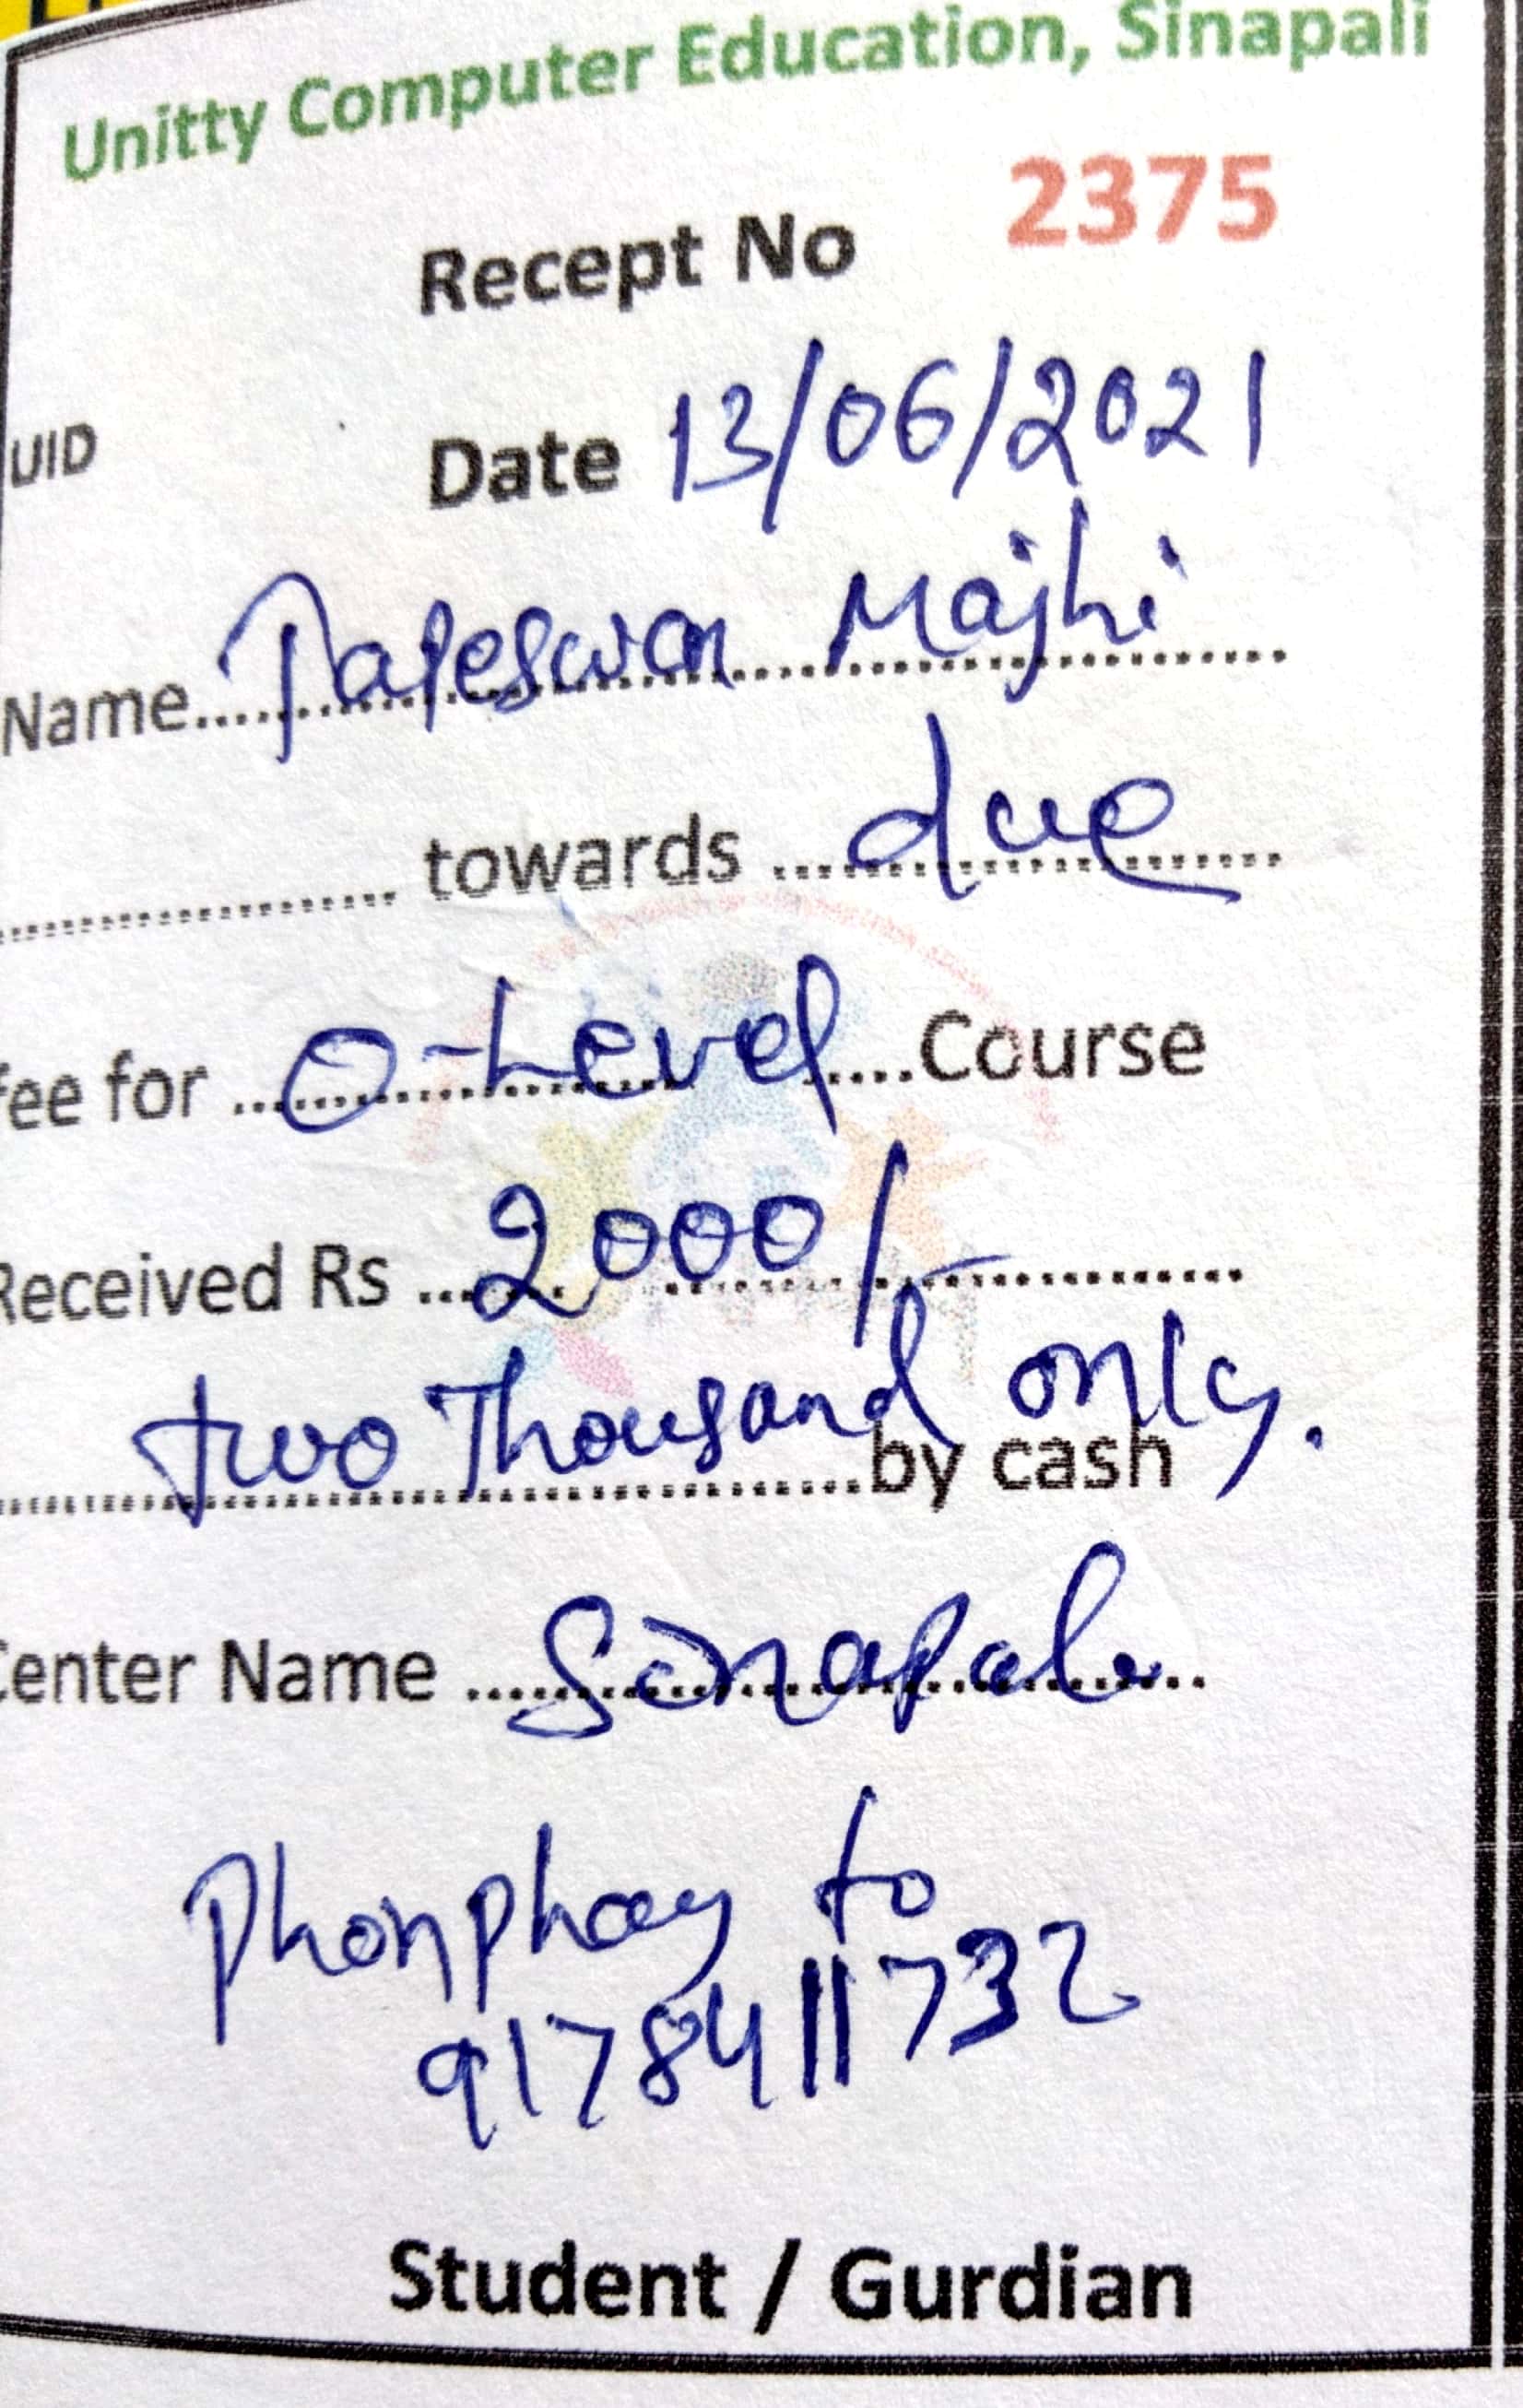 Unitty Computer Education, Sinapali
2375
Recept No
UID
Date 13/06/2021
Name Majhi
towards due
fee for O-Level Course
Received Rs 2000/-
two Thousand only.
by cash
Center Name Sinapali
Phonphay to
9178411732
Student / Gurdian